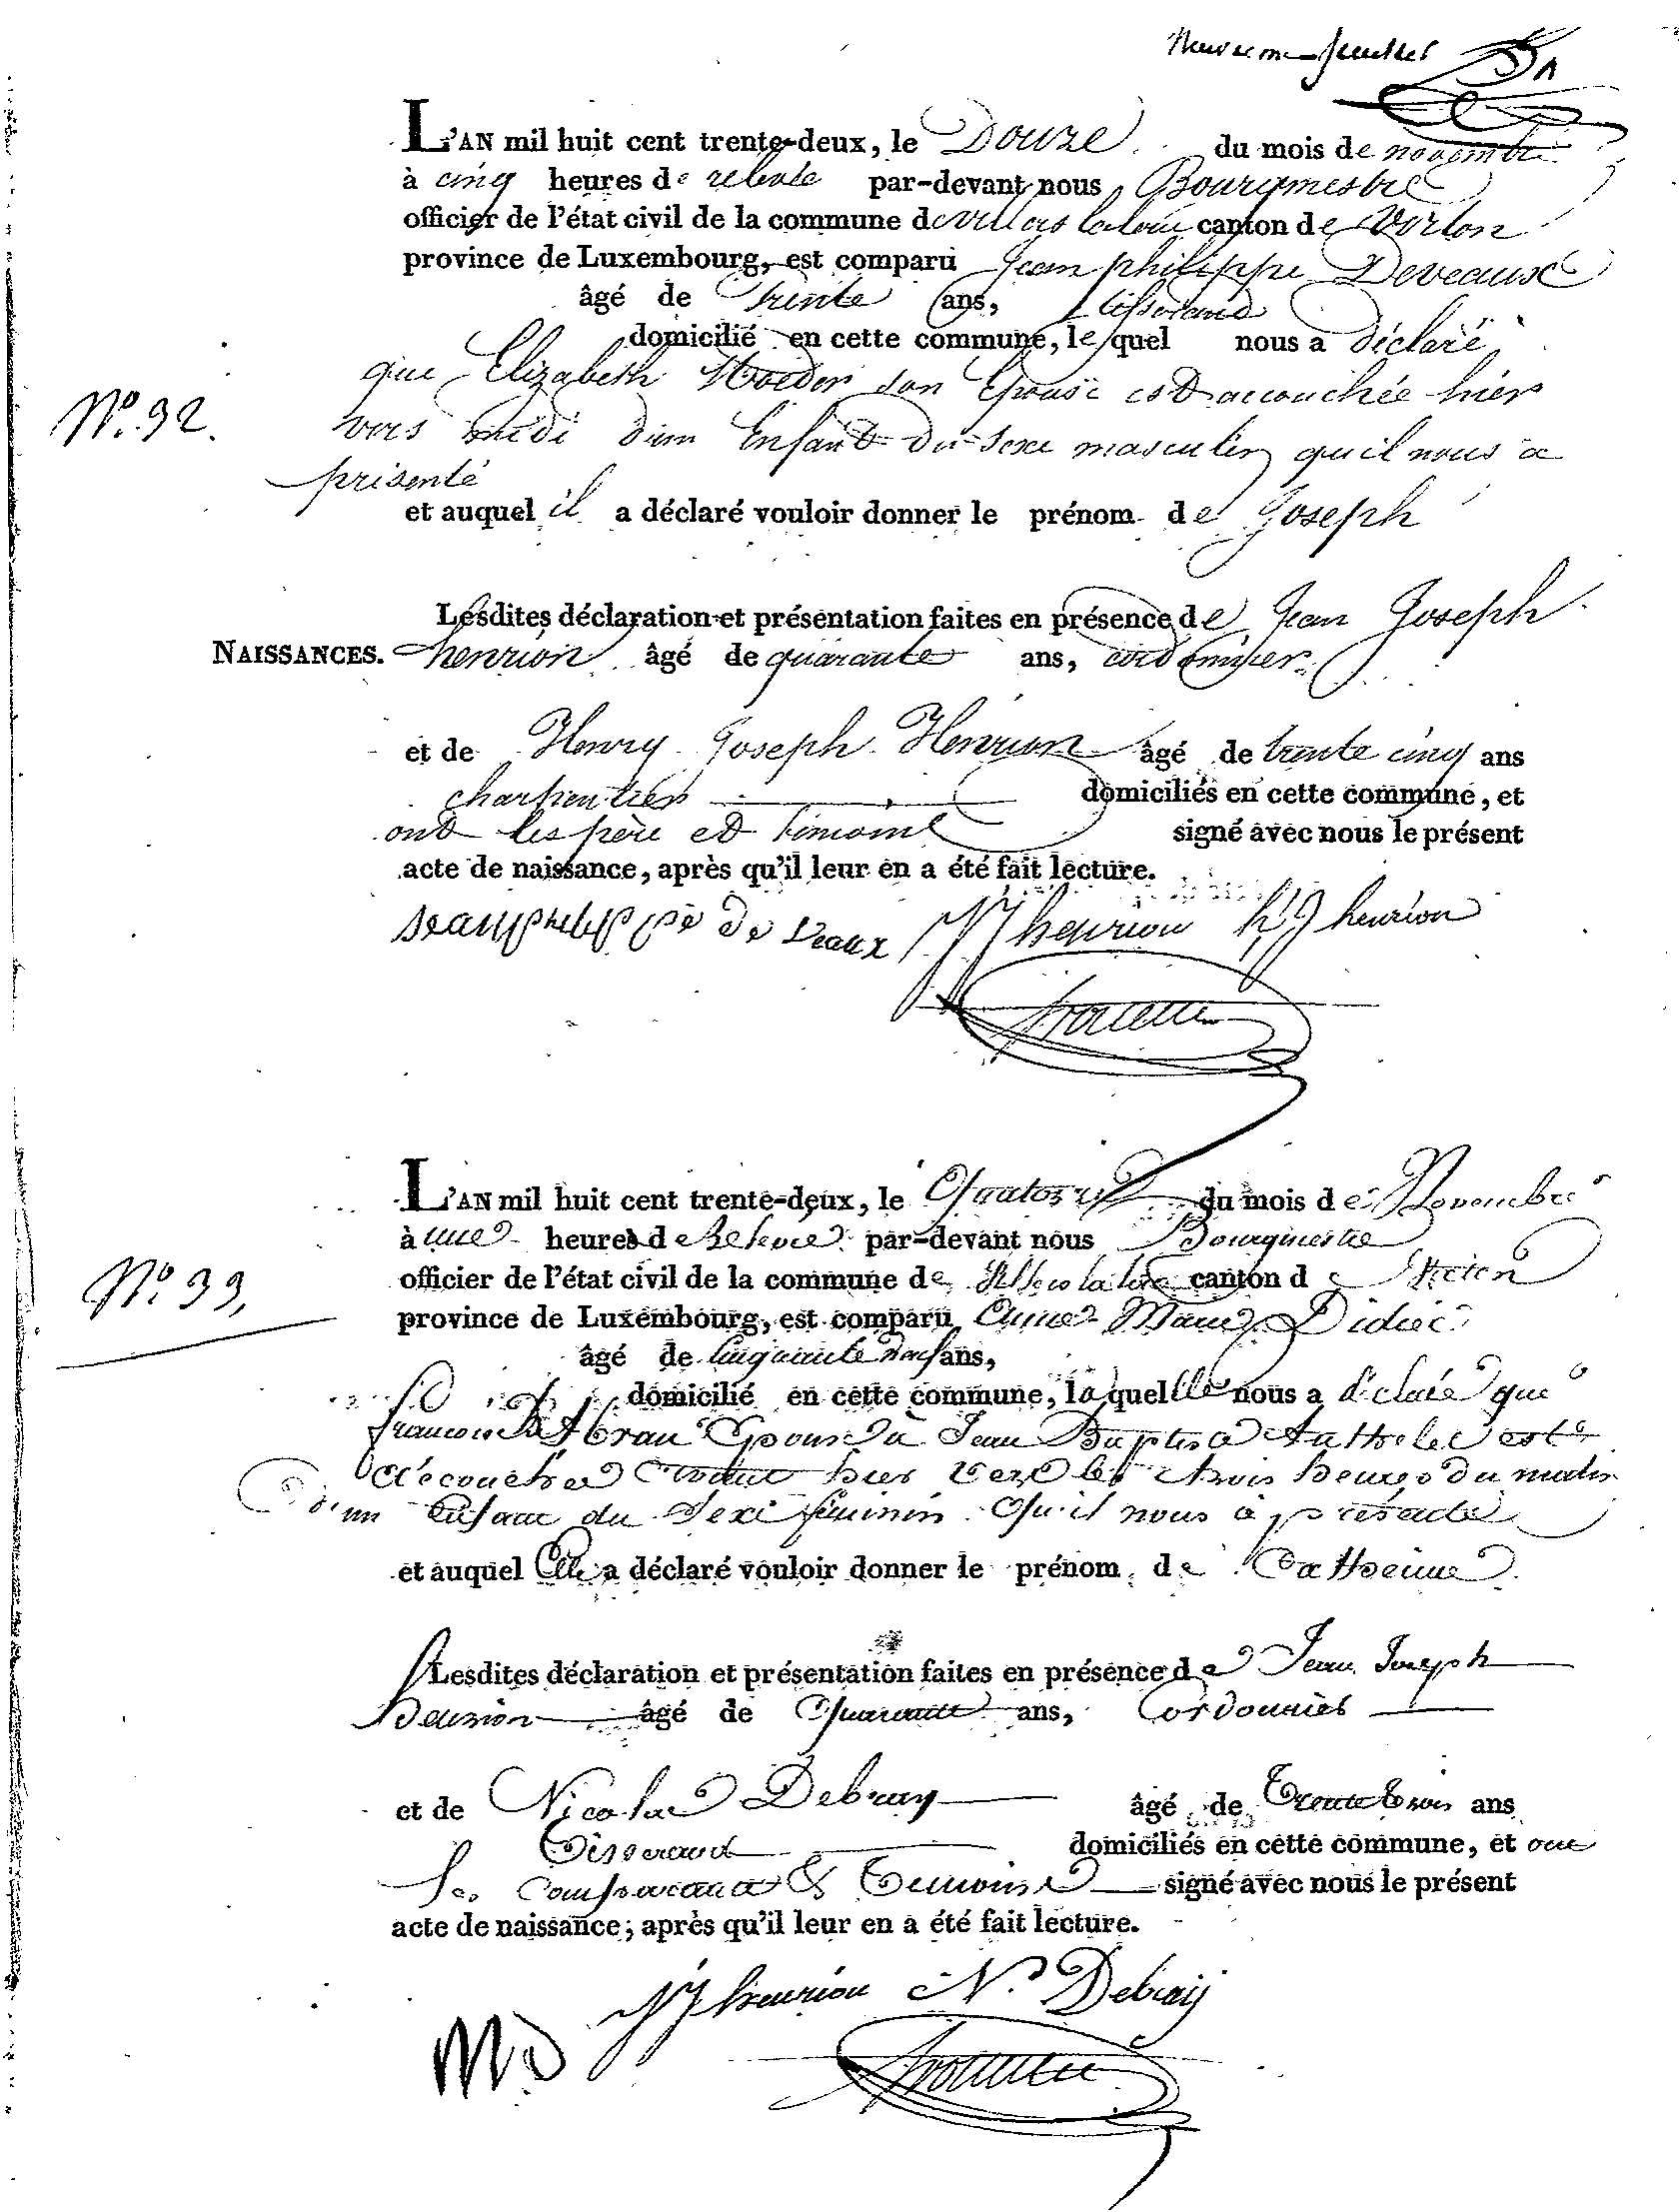 L'AN mil huit cent trente-deux, le Douze du mois de novembre
à cinq heures de relevée par-devant nous Bourgmestre
officier de l'état civil de la commune de Villers laloue canton de Virton
province de Luxembourg, est comparu Jean philippe Deveaux
âgé de trente ans, tisserand
domicilié en cette commune, lequel nous a déclaré
N.º 32.
que Elizabeth son Epouse est accouchée hier
vers midi d'un Enfant du sexe masculin qu'il nous a
présenté
et auquel il a déclaré vouloir donner le prénom de Joseph
Lesdites déclaration et présentation faites en présence de Jean Joseph
NAISSANCES. henrion âgé de quarante ans, cordonnier
et de Henry Joseph Henrion âgé de trente cinq ans
charpentier domiciliés en cette commune, et
ont les père et temoins signé avec nous le présent
acte de naissance, après qu'il leur en a été fait lecture.
jeanphilippe de Veaux JJ henrion h J henrion
L'AN mil huit cent trente-deux, le Quatorze du mois de Novembre
à une heures de Relevée par-devant nous Bourgmestre
N.º 33,
officier de l'état civil de la commune de Villers la loue canton de
province de Luxembourg, est comparu Anne Marie Didier
âgé de Cinquante neuf ans,
domicilié en cette commune, laquelle nous a déclaré que
Epouse à Jean Baptiste est
accouchée hier vers les trois heures du matin
d'un Enfant du Sexe feminin qu'il nous à présenté
et auquel Elle a déclaré vouloir donner le prénom de Catherine
Lesdites déclaration et présentation faites en présence de Jean Joseph
henrion âgé de Quarante ans, Cordonnier
et de Nicolas Debray âgé de Trente trois ans
Tisserand domiciliés en cette commune, et ont
les Comparants & Temoins signé avec nous le présent
acte de naissance, après qu'il leur en a été fait lecture.
JJ henrion N. Debraij
MD